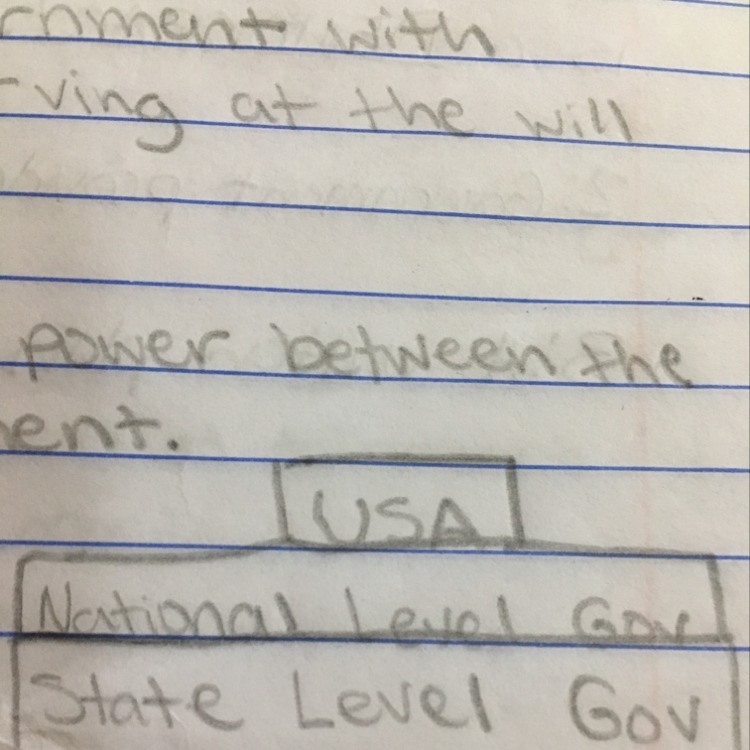 rnment with
rving at the will
power between the
ent.
USA
National Level Gov
State Level Gov